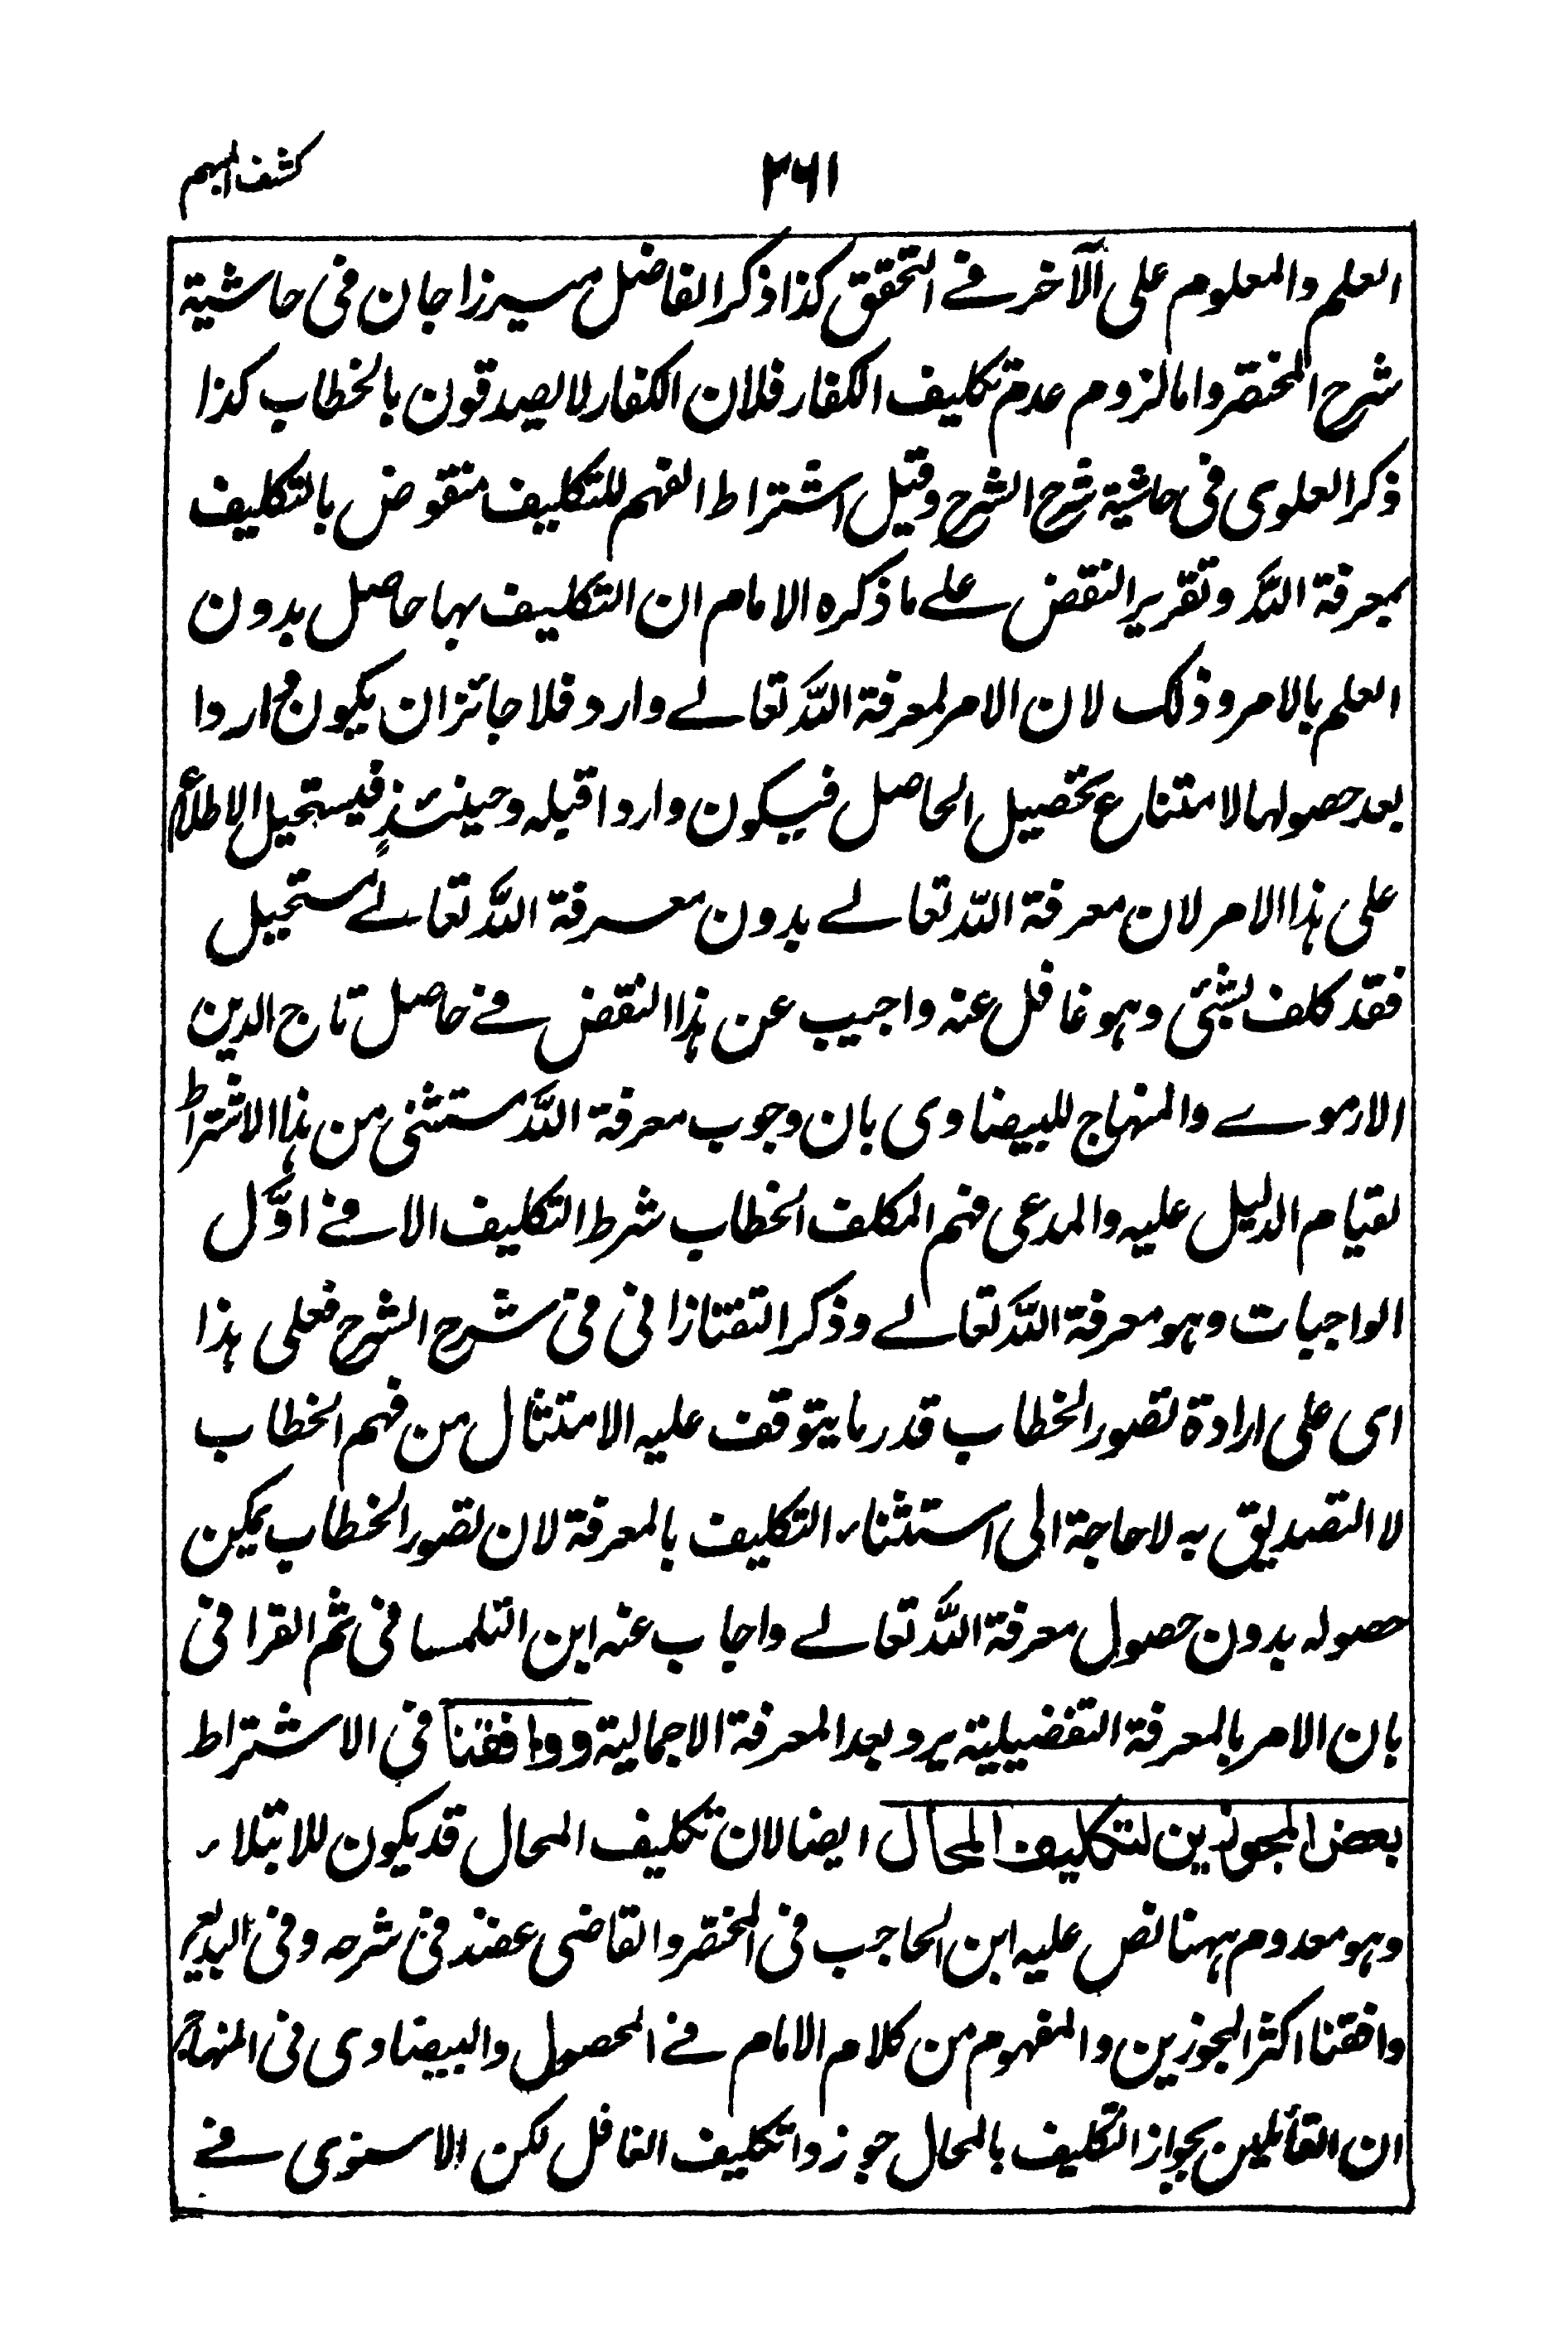 كشف المبهم
٢٦١
العلم والمعلوم على الآخر فى التحقق كذا ذكر الفاضل ميرزا جان فى حاشية
شرح المختصر واما لزوم عدم تكليف الكفار فلان الكفار لا يصدقون بالخطاب كذا
ذكر العلوى فى حاشية شرح الشرح وقيل اشتراط الفهم للتكليف منقوض بالتكليف
بمعرفة الله وتقرير النقض على ما ذكره الامام ان التكليف بها حاصل بدون
العلم بالامر وذلك لان الامر لمعرفة الله تعالى وارد فلا جائز ان يكون واردا
بعد حصولها لامتناع تحصيل الحاصل فيكون واردا قبله وحينئذٍ فيستحيل الاطلاع
على هذا الامر لان معرفة الله تعالى بدون معرفة الله تعالى مستحيل
فقد كلف بشئى وهو غافل عنه واجيب عن هذا النقض فى حاصل تاج الدين
الارموى والمنهاج للبيضاوى بان وجوب معرفة الله مستثنى من هذا الاشتراط
لقيام الدليل عليه والمدعى فهم المكلف الخطاب شرط التكليف الا فى اوّل
الواجبات وهو معرفة الله تعالى وذكر التفتازانى فى شرح الشرح فعلى هذا
اى على ارادة تصور الخطاب قدر ما يتوقف عليه الامتثال من فهم الخطاب
لا التصديق به لا حاجة الى استثناء التكليف بالمعرفة لان تصور الخطاب يمكن
حصوله بدون حصول معرفة الله تعالى واجاب عنه ابن التلمسانى ثم القرافى
بان الامر بالمعرفة التفضيلية يرد بعد المعرفة الاجمالية ووافقنا فى الاشتراط
بعض المجوزين لتكليف المحال ايضا لان تكليف المحال قد يكون للابتلاء
وهو معدوم ههنا نص عليه ابن الحاجب فى المختصر والقاضى عضد فى شرحه وفى البديع
وافقنا اكثر المجوزين والمفهوم من كلام الامام فى المحصول والبيضاوى فى المنهاج
ان القائلين بجواز التكليف بالمحال جوزوا تكليف الغافل لكن الاسنوى فى